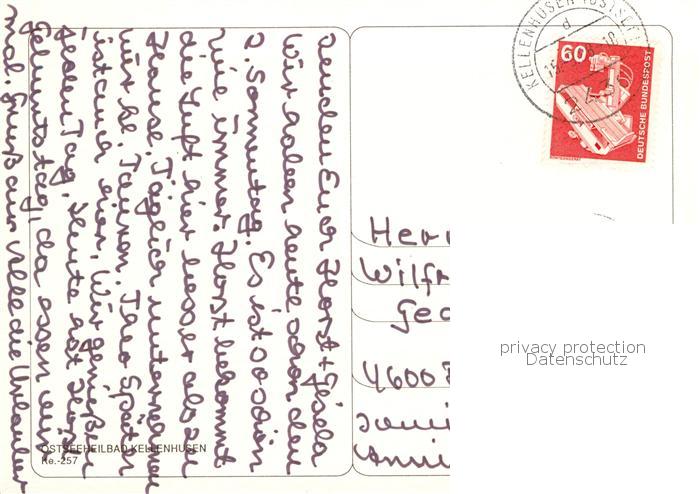 senden Euer Horst + Gisela
Wir haben heute schon den
2. Sonnentag. Es ist so schön
wie immer. Horst bekommt
die Luft hier besser als zu
Hause. Täglich unternehmen
wir kl. Touren. Theo Später
ist auch hier. Wir genießen
jeden Tag. Heute hat Horst
Geburtstag, da essen wir
mal. Gruß aus alle die Urlauber
OSTSEEHEILBAD KELLENHUSEN
Ke.-257
KELLENHUSEN (OSTSEE)
d
60
DEUTSCHE BUNDESPOST
RÖNTGENGERÄT
Herr
Wilfr
Geo
4600
privacy protection
Datenschutz